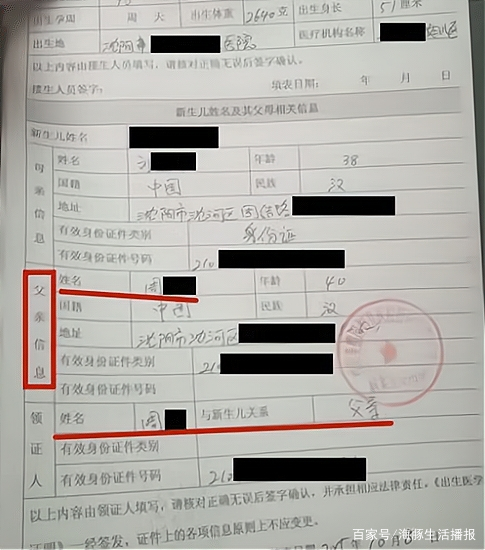 出生孕周 周 天 出生体重 2640克 出生身长 51厘米
出生地 沈阳市 医院 医疗机构名称
以上内容由接生人员填写，请核对正确无误后签字确认。
接生人员签字： 填表日期： 年 月 日
新生儿姓名及其父母相关信息
新生儿姓名
母亲信息
姓名 年龄 38
国籍 中国 民族 汉
地址 沈阳市沈河区
有效身份证件类别 身份证
有效身份证件号码 210
父亲信息
姓名 周 年龄 40
国籍 中国 民族 汉
地址 沈阳市沈河区
有效身份证件类别 210
有效身份证件号码
领证人
姓名 周 与新生儿关系 父亲
有效身份证件类别
有效身份证件号码 210
以上内容由领证人填写，请核对正确无误后签字确认，并承担相应法律责任。《出生医学
证明》一经签发，证件上的各项信息原则上不应变更。
百家号/海豚生活播报